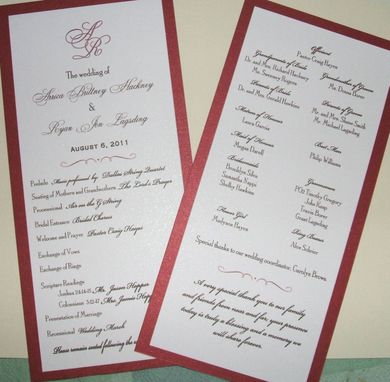 A
R
The wedding of
Arica Brittney Hackney
&
Ryan Jon Lagsding
AUGUST 6, 2011
Prelude Music performed by: Dallas String Quartet
Seating of Mothers and Grandmothers The Lord's Prayer
Processional Air on the G String
Bridal Entrance Bridal Chorus
Welcome and Prayer Pastor Craig Hayes
Exchange of Vows
Exchange of Rings
Scripture Readings
Joshua 24:14-15 Mr. Jason Hopper
Colossians 3:12-17 Mrs. Jennie Hopper
Presentation of Marriage
Recessional Wedding March
Please remain seated following the
Officiant
Pastor Craig Hayes
Grandparents of Bride
Dr. and Mrs. Richard Hackney
Mr. Sweeney Rogers
Grandmother of Groom
Ms. Donna Borer
Parents of Bride
Dr. and Mrs. Hackney
Mr. and Mrs. Gerald Hawkins
Parents of Groom
Mr. and Mrs. Shane Smith
Mr. Michael Lagsding
Matron of Honor
Laura Garcia
Maid of Honor
Megan Randall
Best Man
Philip Williams
Bridesmaids
Brooklyn Silva
Samantha Nagy
Shelby Hawkins
Groomsmen
PO2 Timothy Gregory
John Kemp
Travis Borer
Grant Lagsding
Flower Girl
Madyson Hayes
Ring Bearer
Alex Salazar
Special thanks to our wedding coordinator: Carolyn Brown.
A very special thank you to our family
and friends from near and far, your presence
today is truly a blessing and a memory we
will share forever.